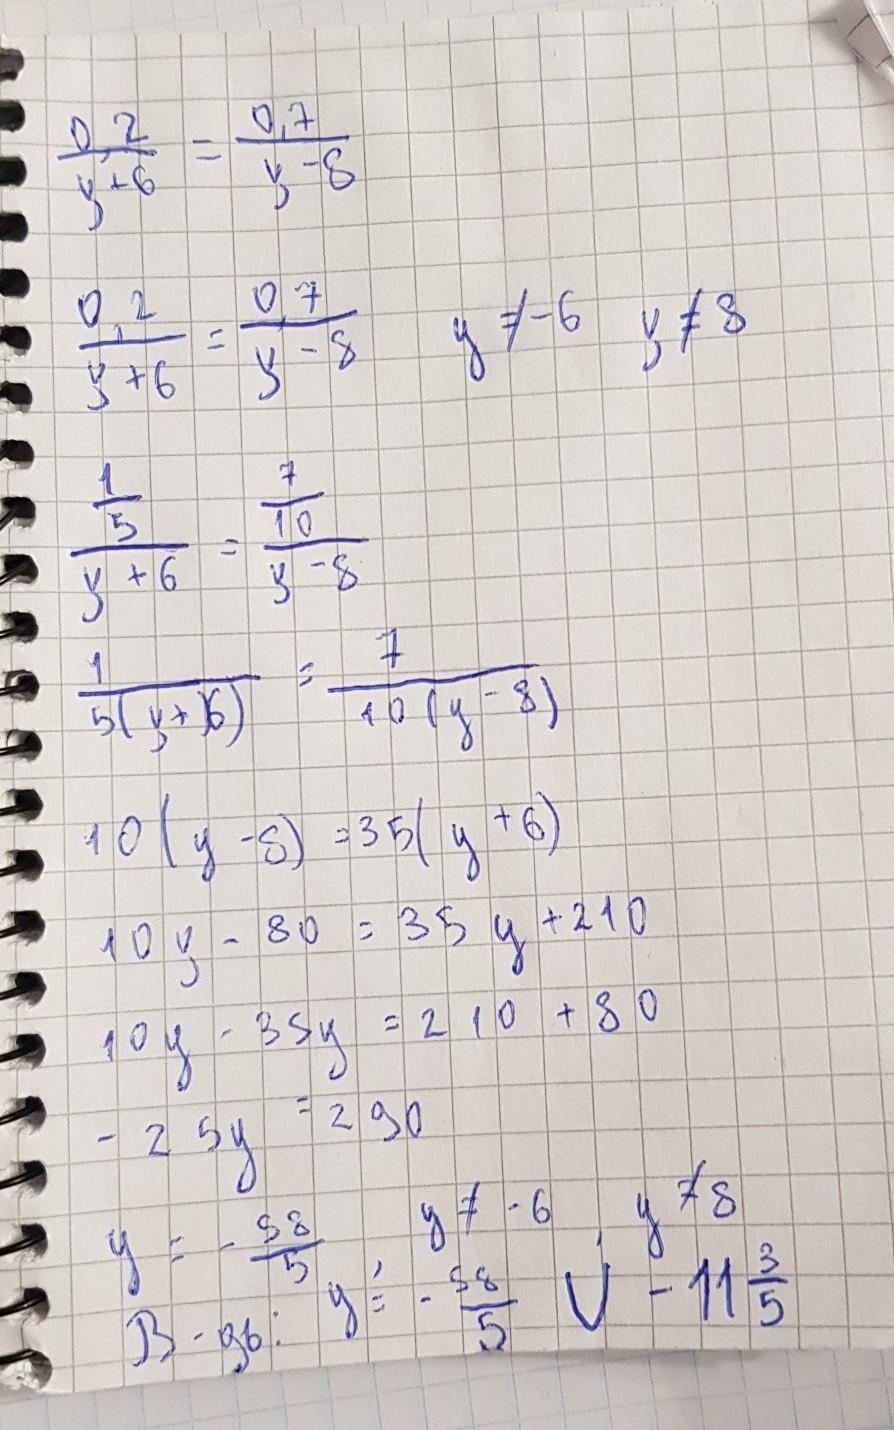 0,2/y+6 = 0,7/y-8
0,2/y+6 = 0,7/y-8 y ≠ -6 y ≠ 8
1/5/y+6 = 7/10/y-8
1/5(y+6) = 7/10(y-8)
10(y-8)=35(y+6)
10y - 80 = 35y+210
10y - 35y = 210 + 80
- 25y = 290
y = - 58/5 y ≠ -6, y ≠ 8
В-дь: y = - 58/5 U - 11 3/5